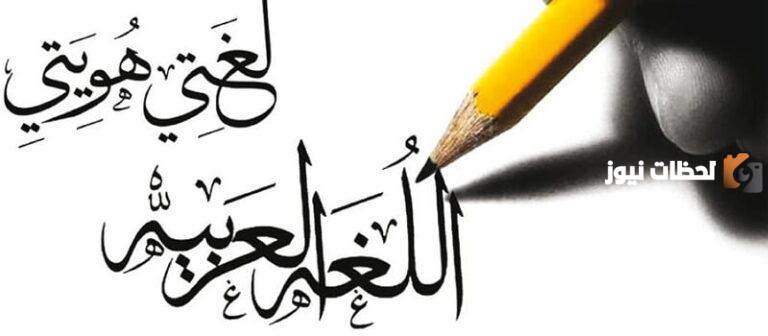 لُغَتِي هُوِيَتِي
اللُغَه العَرَبيه
لحظات نيوز